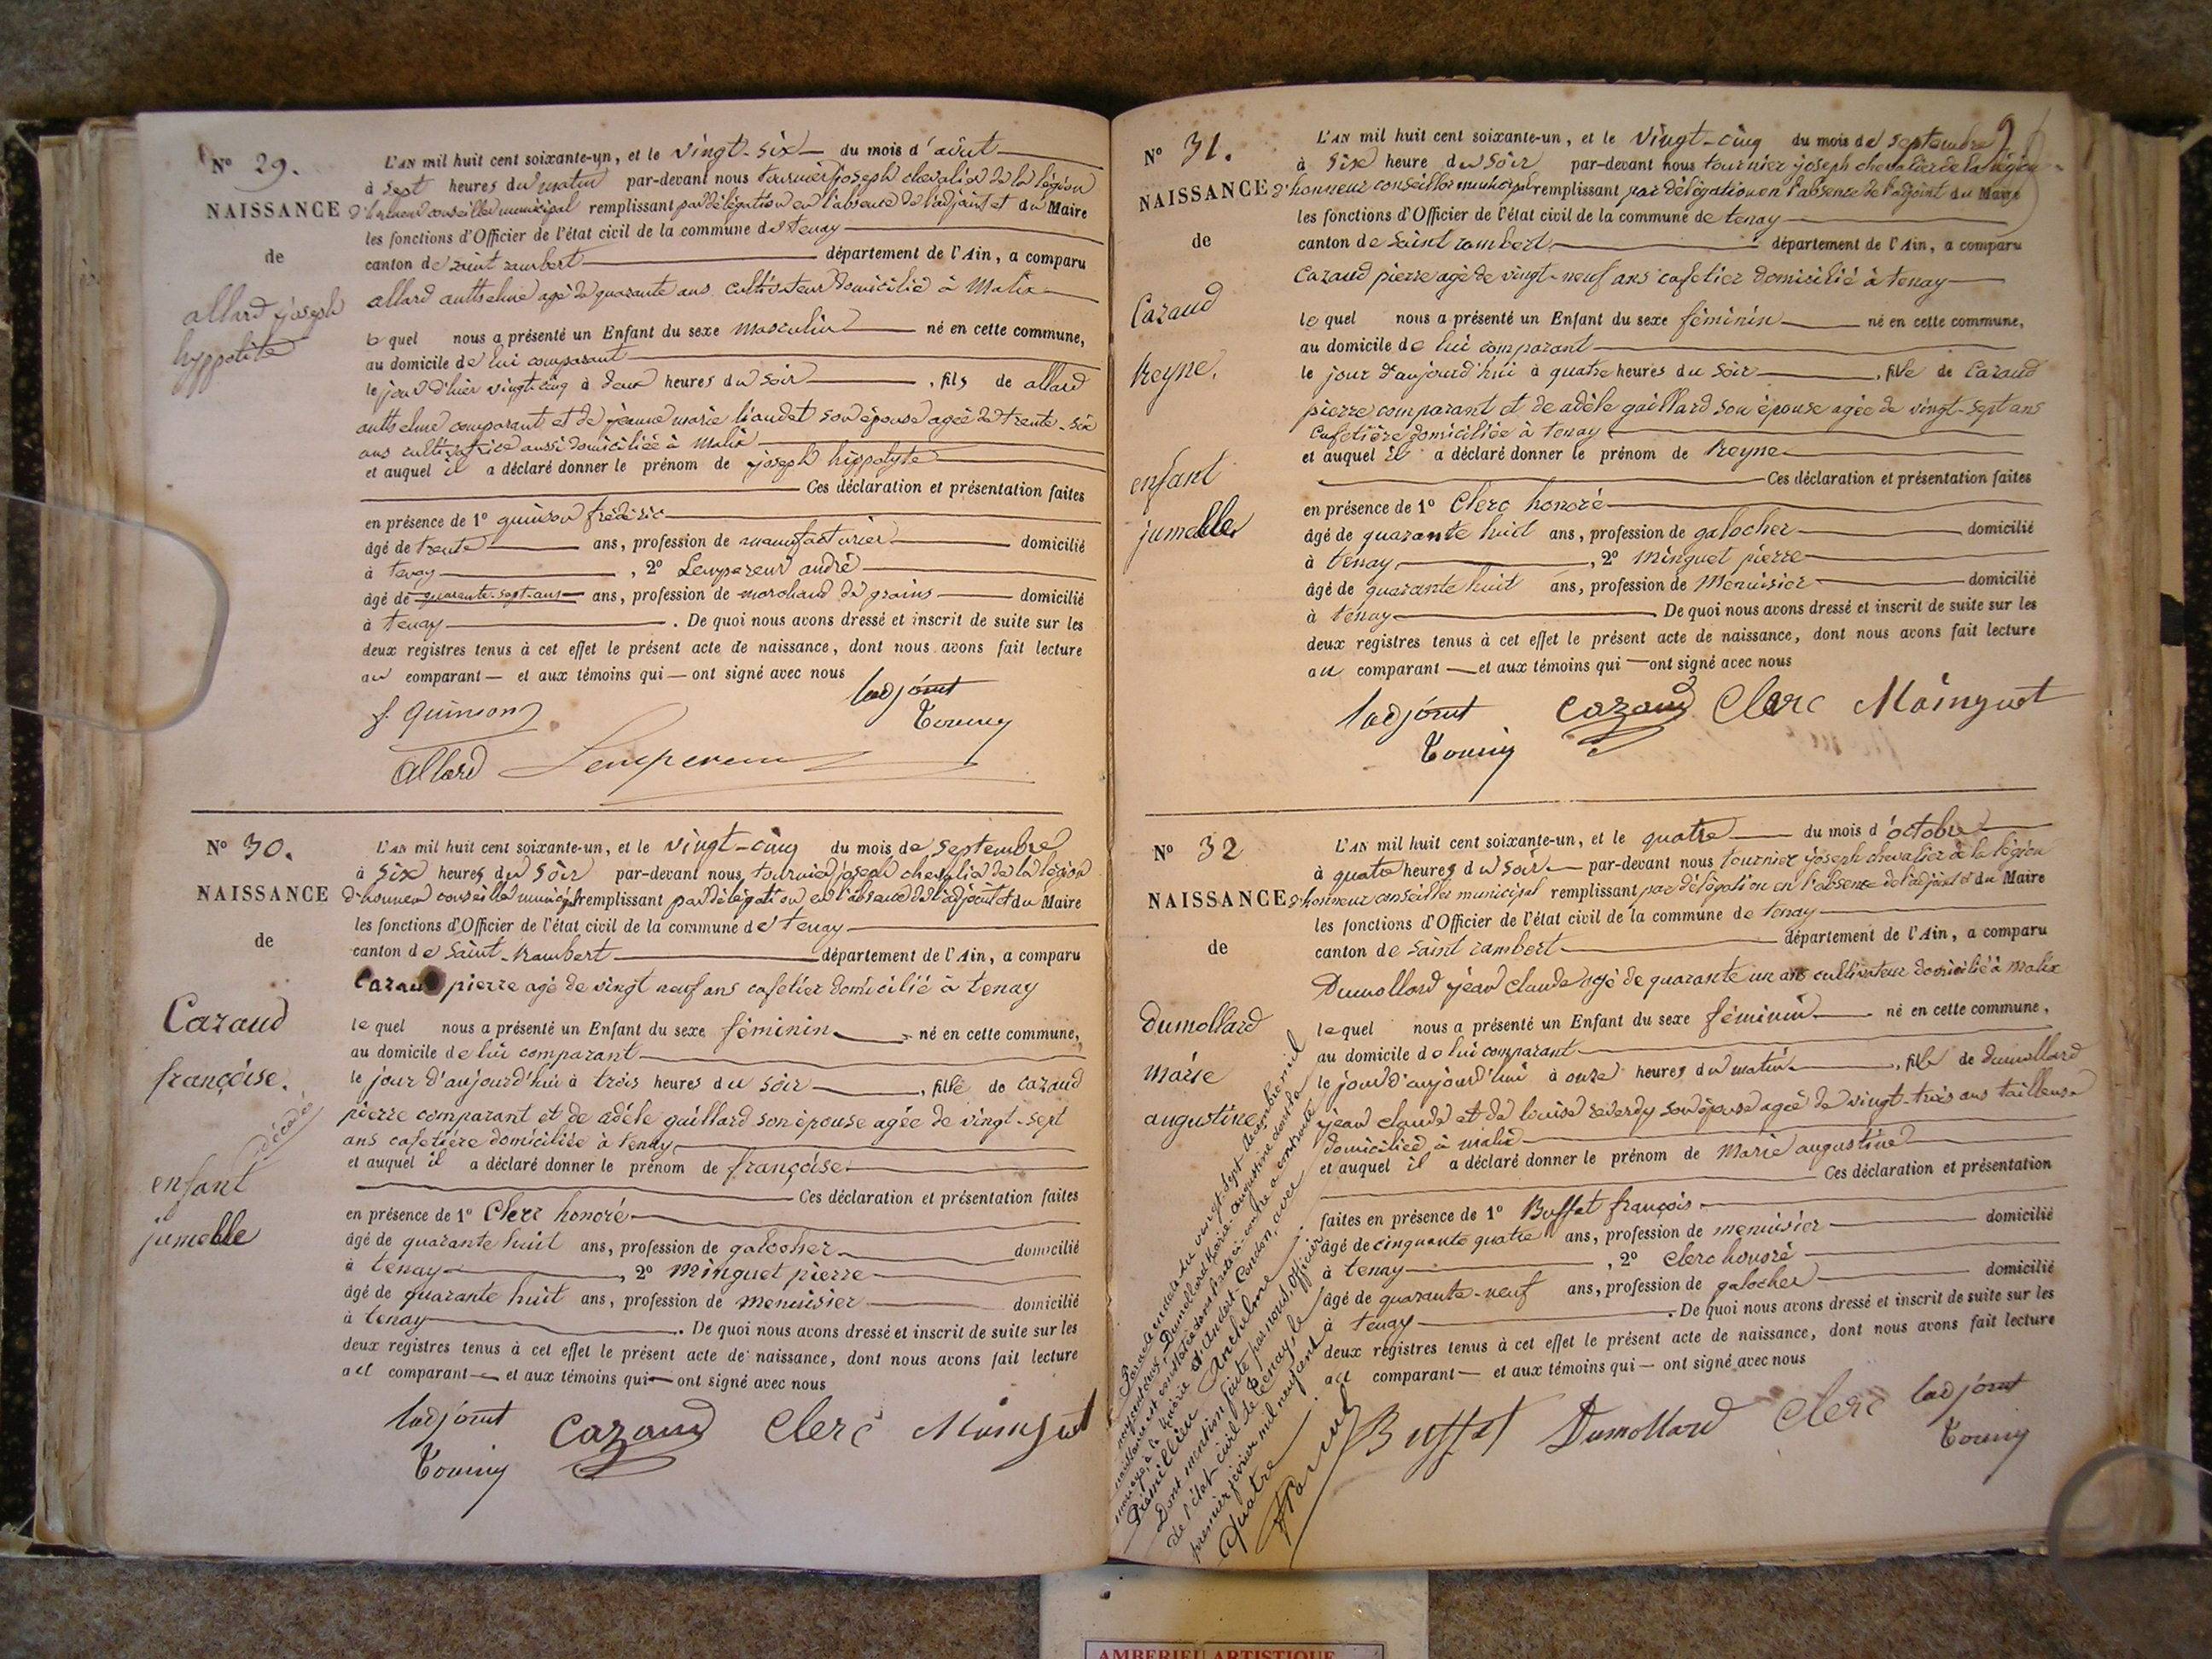 N° 29.
NAISSANCE
de
allard joseph
hyppolite
L'AN mil huit cent soixante-un, et le vingt-six du mois d'août
à sept heures du matin par-devant nous tournier joseph chevalier de la légion
d'honneur conseiller municipal remplissant par délégation en l'absence de l'adjoint et du Maire
les fonctions d'Officier de l'état civil de la commune de tenay
canton de saint rambert département de l'Ain, a comparu
allard anthelme agé de quarante ans cultivateur domicilié à Malix
lequel nous a présenté un Enfant du sexe masculin né en cette commune,
au domicile de lui comparant
le jour d'hier vingt-cinq à deux heures du soir, fils de allard
anthelme comparant et de jeanne marie liaudet son épouse agée de trente-six
ans cultivatrice aussi domiciliée à Malix
et auquel il a déclaré donner le prénom de joseph hippolyte
Ces déclaration et présentation faites
en présence de 1° quinson frédéric
âgé de trente ans, profession de manufacturier domicilié
à tenay, 2° Lempereur andré
âgé de quarante-sept-ans ans, profession de marchand de grains domicilié
à tenay. De quoi nous avons dressé et inscrit de suite sur les
deux registres tenus à cet effet le présent acte de naissance, dont nous avons fait lecture
au comparant et aux témoins qui ont signé avec nous
ladjoint
f. Quinson
allard Lempereur
N° 30.
NAISSANCE
de
Cazaud
françoise.
décédée
enfant
jumelle
L'AN mil huit cent soixante-un, et le vingt-cinq du mois de septembre
à six heures du soir par-devant nous tournier joseph chevalier de la légion
d'honneur conseiller municipal remplissant par délégation en l'absence de l'adjoint et du Maire
les fonctions d'Officier de l'état civil de la commune de tenay
canton de saint-Rambert département de l'Ain, a comparu
Cazaud pierre agé de vingt neuf ans cafetier domicilié à tenay
lequel nous a présenté un Enfant du sexe féminin né en cette commune,
au domicile de lui comparant
le jour d'aujourd'hui à trois heures du soir, fille de cazaud
pierre comparant et de adèle gaillard son épouse agée de vingt-sept
ans cafetière domiciliée à tenay
et auquel il a déclaré donner le prénom de françoise
Ces déclaration et présentation faites
en présence de 1° Clerc honoré
âgé de quarante huit ans, profession de galocher domicilié
à tenay, 2° minguet pierre
âgé de quarante huit ans, profession de menuisier domicilié
à tenay. De quoi nous avons dressé et inscrit de suite sur les
deux registres tenus à cet effet le présent acte de naissance, dont nous avons fait lecture
au comparant et aux témoins qui ont signé avec nous
ladjoint Cazaud Clerc Mainguet
N° 31.
NAISSANCE
de
Cazaud
Reyne.
enfant
jumelle
L'AN mil huit cent soixante-un, et le vingt-cinq du mois de septembre
à six heure du soir par-devant nous tournier joseph chevalier de la légion
d'honneur conseiller municipal remplissant par délégation en l'absence de l'adjoint du Maire
les fonctions d'Officier de l'état civil de la commune de tenay
canton de saint rambert département de l'Ain, a comparu
Cazaud pierre agé de vingt-neuf ans cafetier domicilié à tenay
lequel nous a présenté un Enfant du sexe féminin né en cette commune,
au domicile de lui comparant
le jour d'aujourd'hui à quatre heures du soir, fille de Cazaud
pierre comparant et de adèle gaillard son épouse agée de vingt-sept ans
cafetière domiciliée à tenay
et auquel il a déclaré donner le prénom de Reyne
Ces déclaration et présentation faites
en présence de 1° Clerc honoré
âgé de quarante huit ans, profession de galocher domicilié
à tenay, 2° minguet pierre
âgé de quarante huit ans, profession de Menuisier domicilié
à tenay De quoi nous avons dressé et inscrit de suite sur les
deux registres tenus à cet effet le présent acte de naissance, dont nous avons fait lecture
au comparant et aux témoins qui ont signé avec nous
ladjoint Cazaud Clerc Mainguet
N° 32
NAISSANCE
de
dumollard
marie
augustine
L'AN mil huit cent soixante-un, et le quatre du mois d'octobre
à quatre heures du soir par-devant nous tournier joseph chevalier de la légion
d'honneur conseiller municipal remplissant par délégation en l'absence de l'adjoint et du Maire
les fonctions d'Officier de l'état civil de la commune de tenay
canton de saint rambert département de l'Ain, a comparu
Dumollard jean claude agé de quarante un ans cultivateur domicilié à malix
lequel nous a présenté un Enfant du sexe féminin né en cette commune,
au domicile de lui comparant
le jour d'aujourd'hui à onze heures du matin, fille de dumollard
jean claude et de louise reverdy son épouse agée de vingt-trois ans tailleuse
domiciliée à malix
et auquel il a déclaré donner le prénom de marie augustine
Ces déclaration et présentation
faites en présence de 1° Buffet françois
âgé de cinquante quatre ans, profession de menuisier domicilié
à tenay, 2° clerc honoré
âgé de quarante-neuf ans, profession de galocher domicilié
à tenay. De quoi nous avons dressé et inscrit de suite sur les
deux registres tenus à cet effet le présent acte de naissance, dont nous avons fait lecture
au comparant et aux témoins qui ont signé avec nous
ladjoint
Buffet Dumollard Clerc
Par acte en date du vingt sept décembre mil
Dumollard Marie-augustine dont la
naissance est constatée dans l'acte ci-contre a contracté
mariage, à la Mairie d'Andert-Condon, avec
Prémillieu Anthelme.
Dont mention faite par nous, Officier
de l'état-civil de Tenay, le
premier janvier mil neuf cent
quatre.
AMBERIEU ARTISTIQUE